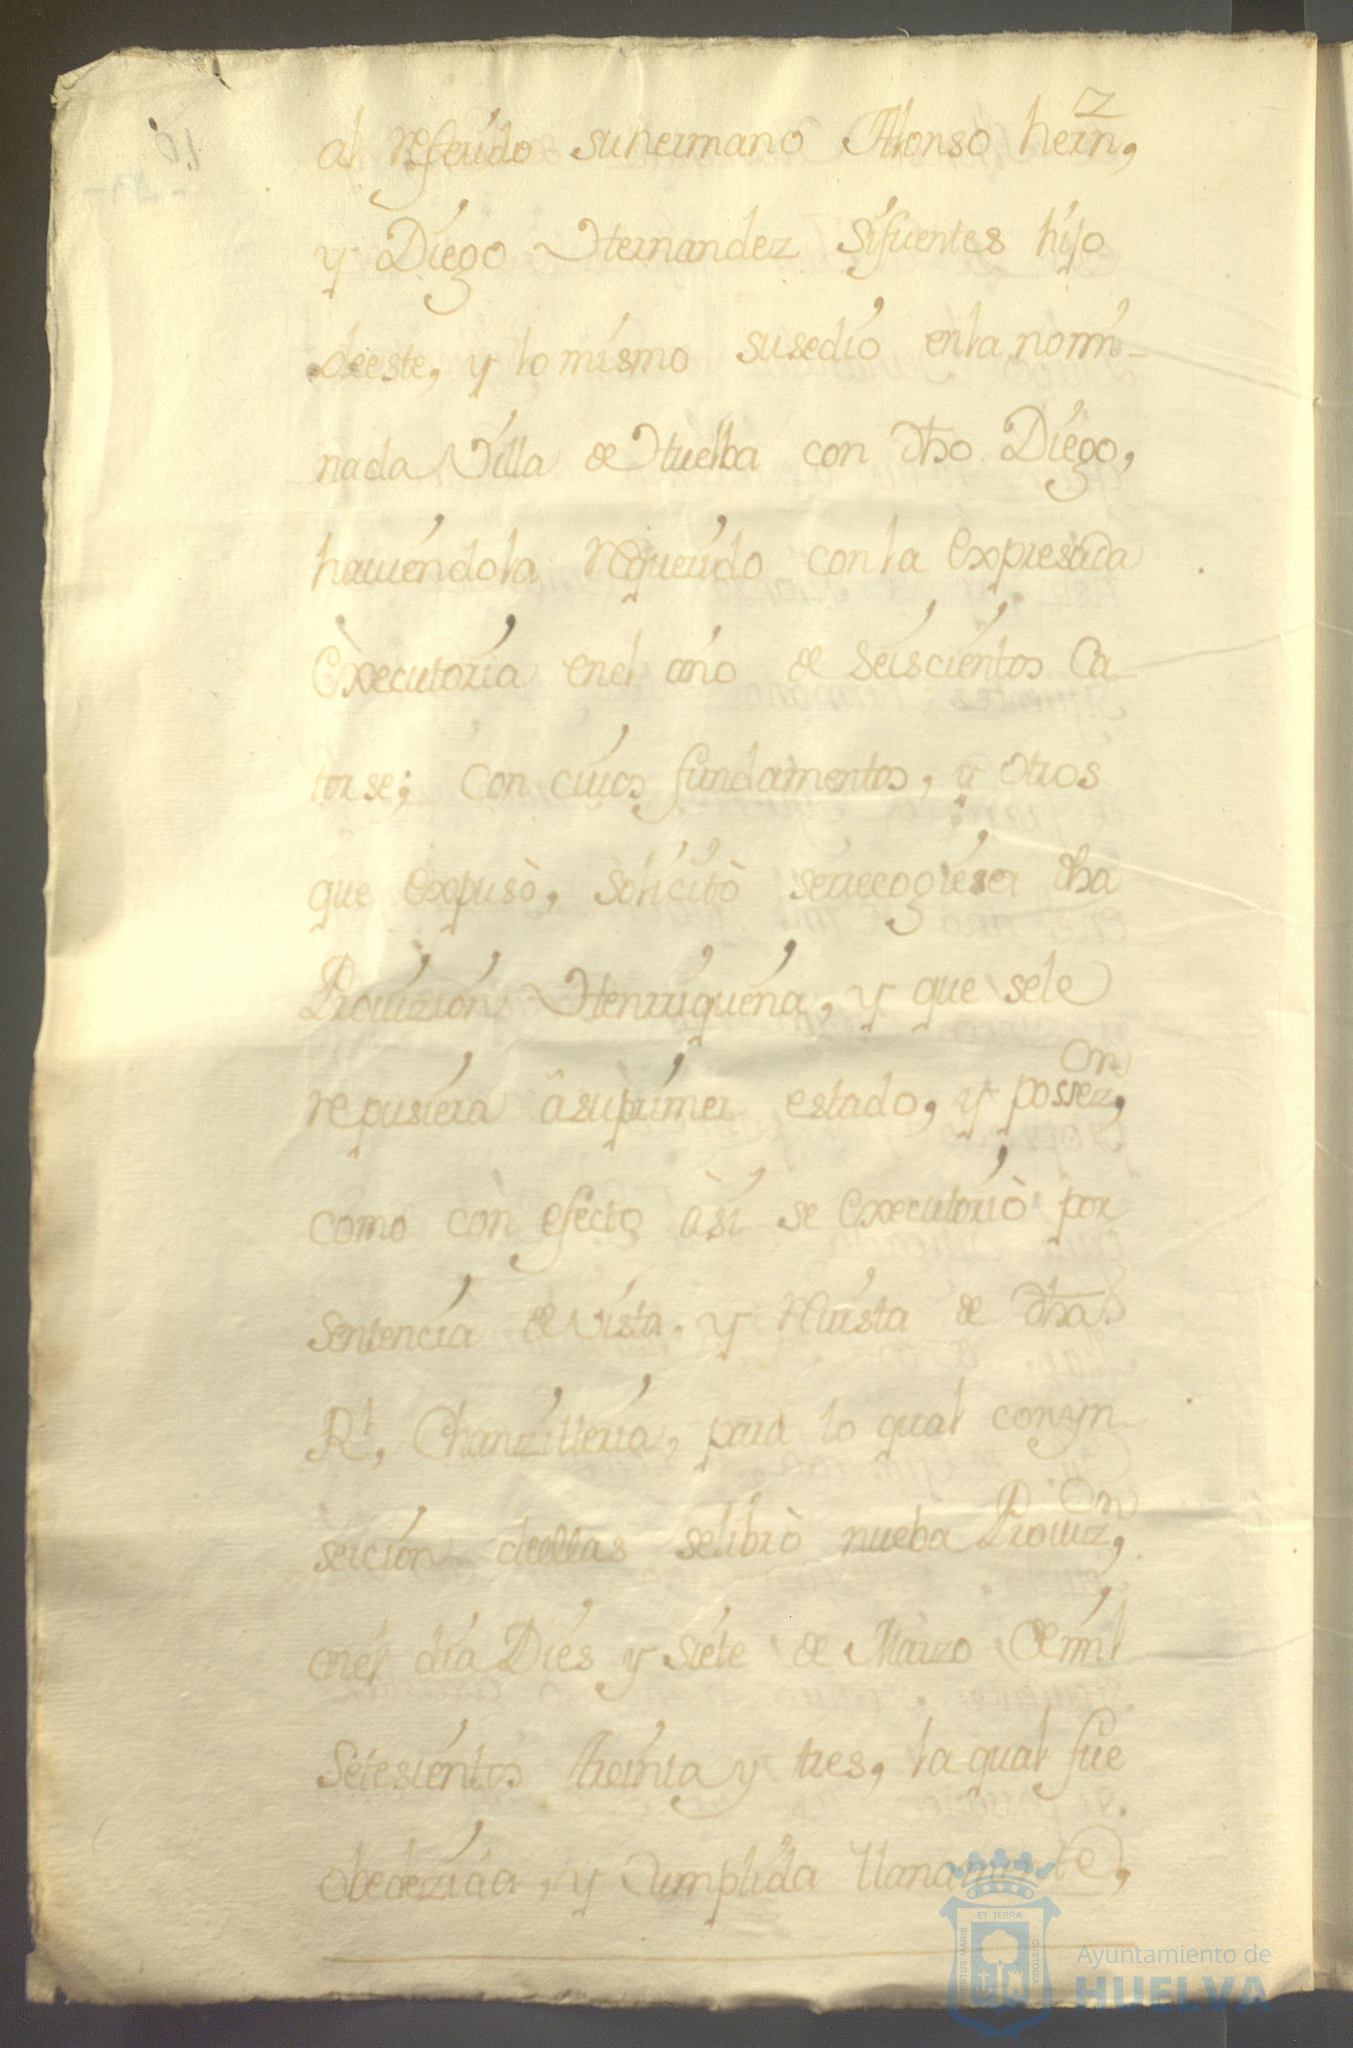 al referido suhermano Alonso hern,z
y Diego Hernandez Sifuentes hijo
deeste, y lo mismo susedio enla nomi-
nada Villa de Huelba con dho Diego,
haviendola requerido con la expresada
Executoria enel año de seiscientos Ca-
torse; con cuios fundamentos, y otros
que expusò, solicitò serecogiese dha
Provizion Henrriqueña, y que sele
repusiera âsuprimer estado, y possez,on
como còn efecto àsi se executoriò por
sentencia de vista, y revista de dha
Rl, Chanzilleria, para lo qual conyn-
sercion deellas selibrò nueba Proviz,on
enel dia Dies y siete de Marzo de mil
Setesientos treinta y tres, la qual fue
obedezida, y Cumplida llanamente,
ET TERRÆ
PORTUS MARIS
CUSTODIA
Ayuntamiento de
HUELVA